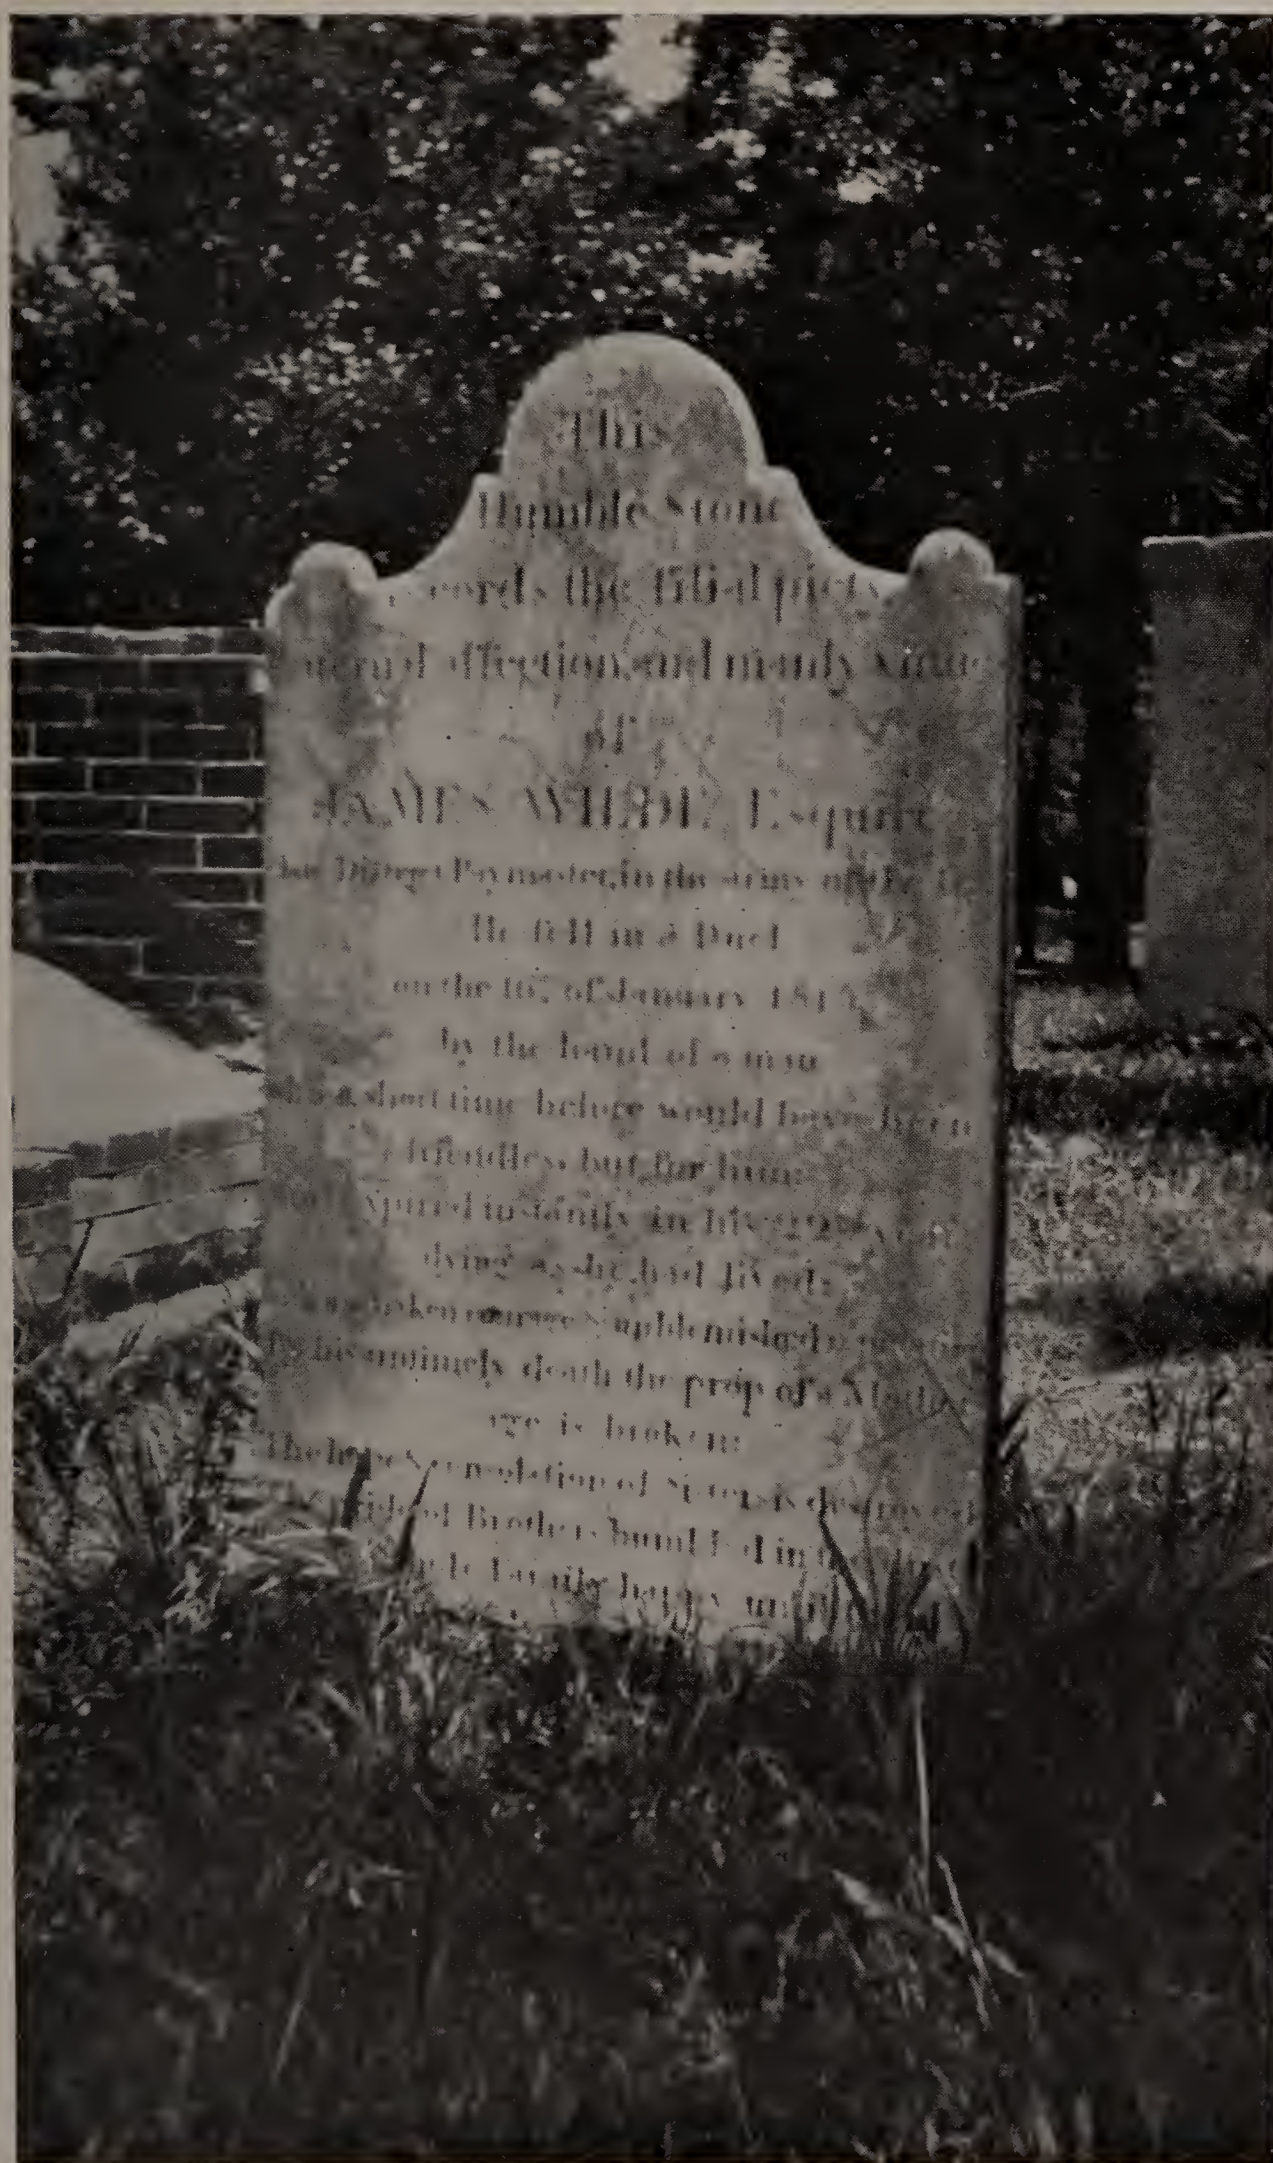 This
Humble Stone
records the filial piety
fraternal affection and manly virtues
of
JAMES WILDE, Esquire
late District Paymaster, in the army of the
He fell in a Duel
on the 16th of January 1815
by the hand of a man
who a short time before would have been
friendless but for him:
expired instantly in his
dying as he had lived:
unshaken courage & unblemished
By his untimely death the prop of a Mother's
age is broken:
The hope & consolation of Sisters is destroyed
of Brothers humbled in the dust
whole Family happy until